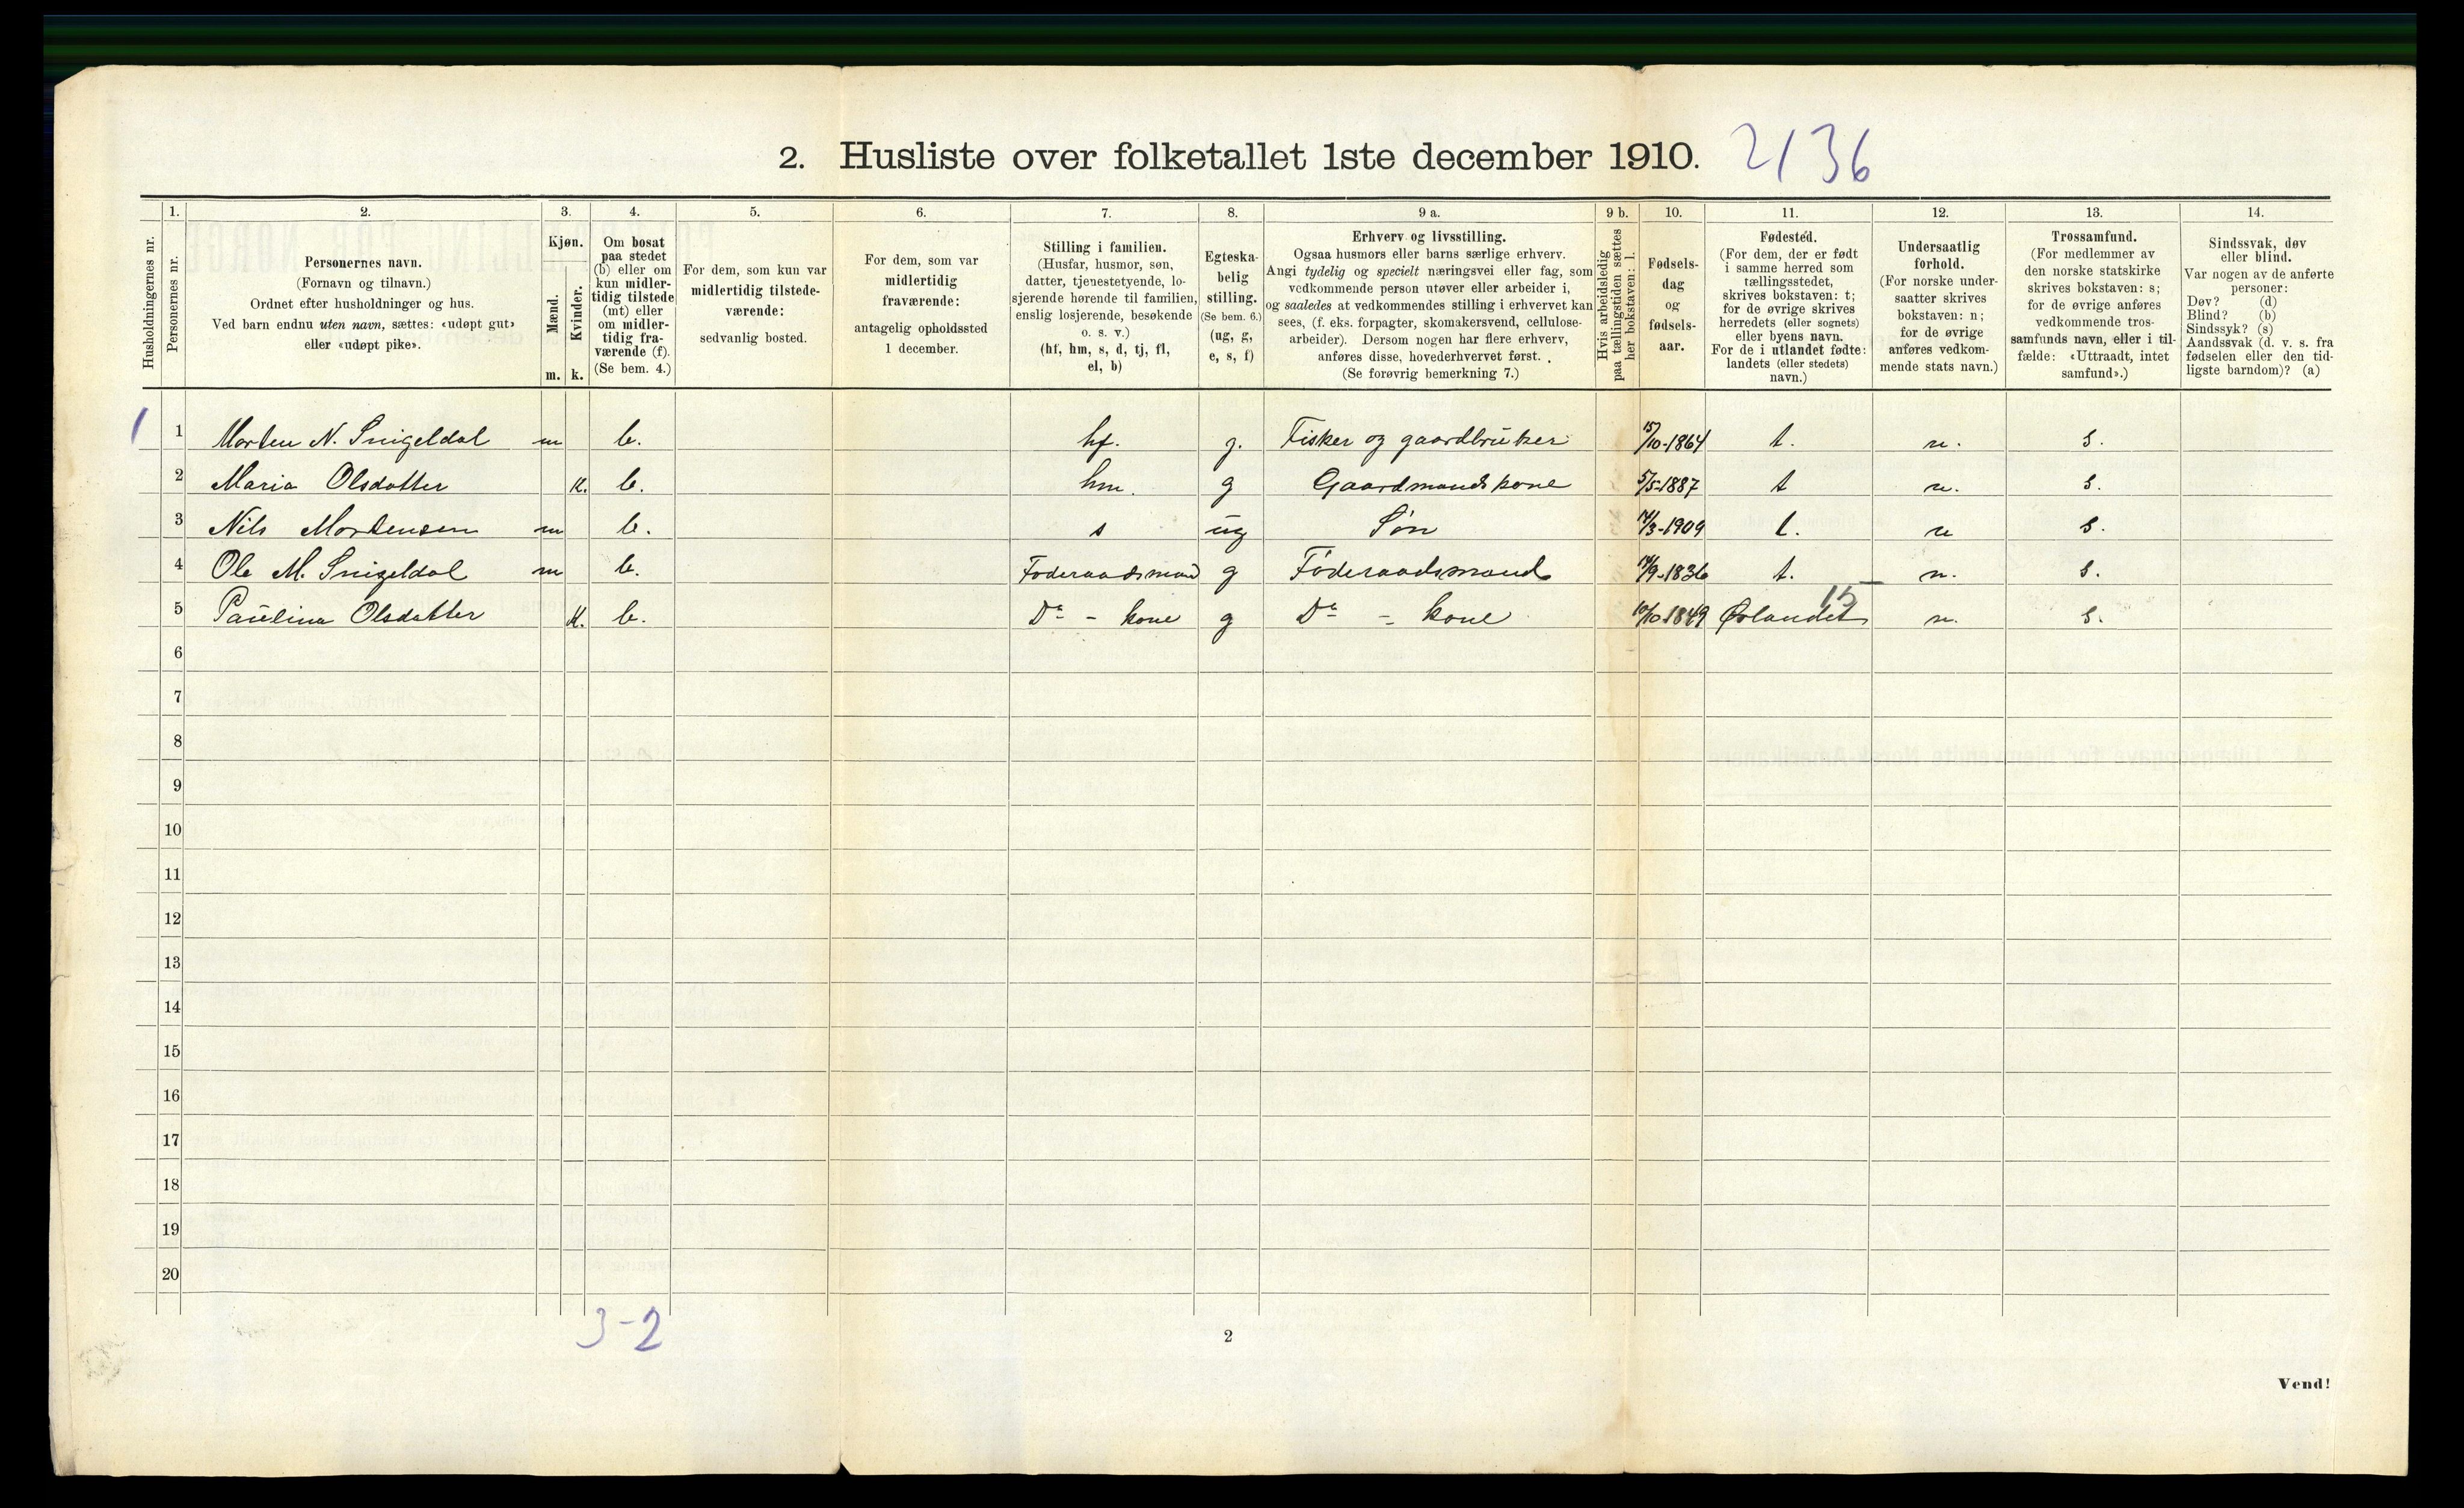 2. Husliste over folketallet 1ste december 1910. 2136
1. 2. 3. 4. 5. 6. 7. 8. 9 a. 9 b. 10. 11. 12. 13. 14.
Husholdningernes nr.
Personernes nr.
Personernes navn.
(Fornavn og tilnavn.)
Ordnet efter husholdninger og hus.
Ved barn endnu uten navn, sættes: «udøpt gut»
eller «udøpt pike».
Kjøn.
Mænd.
Kvinder.
m. k.
Om bosat
paa stedet
(b) eller om
kun midler-
tidig tilstede
(mt) eller
om midler-
tidig fra-
værende (f).
(Se bem. 4.)
For dem, som kun var
midlertidig tilstede-
værende:
sedvanlig bosted.
For dem, som var
midlertidig
fraværende:
antagelig opholdssted
1 december.
Stilling i familien.
(Husfar, husmor, søn,
datter, tjenestetyende, lo-
sjerende hørende til familien,
enslig losjerende, besøkende
o. s. v.)
(hf, hm, s, d, tj, fl,
el, b)
Egteska-
belig
stilling.
(Se bem. 6.)
(ug, g,
e, s, f)
Erhverv og livsstilling.
Ogsaa husmors eller barns særlige erhverv.
Angi tydelig og specielt næringsvei eller fag, som
vedkommende person utøver eller arbeider i,
og saaledes at vedkommendes stilling i erhvervet kan
sees, (f. eks. forpagter, skomakersvend, cellulose-
arbeider). Dersom nogen har flere erhverv,
anføres disse, hovederhvervet først.
(Se forøvrig bemerkning 7.)
Hvis arbeidsledig
paa tællingstiden sættes
her bokstaven: l.
Fødsels-
dag
og
fødsels-
aar.
Fødested.
(For dem, der er født
i samme herred som
tællingsstedet,
skrives bokstaven: t;
for de øvrige skrives
herredets (eller sognets)
eller byens navn.
For de i utlandet fødte:
landets (eller stedets)
navn.)
Undersaatlig
forhold.
(For norske under-
saatter skrives
bokstaven: n;
for de øvrige
anføres vedkom-
mende stats navn.)
Trossamfund.
(For medlemmer av
den norske statskirke
skrives bokstaven: s;
for de øvrige anføres
vedkommende tros-
samfunds navn, eller i til-
fælde: «Uttraadt, intet
samfund».)
Sindssvak, døv
eller blind.
Var nogen av de anførte
personer:
Døv? (d)
Blind? (b)
Sindssyk? (s)
Aandssvak (d. v. s. fra
fødselen eller den tid-
ligste barndom)? (a)
1 1 Morten N. Snigeldal m b. hf. g. Fisker og gaardbruker 15/10-1864 t. n. s.
2 Maria Olsdatter k. b. hm. g Gaardmandskone 5/5-1887 t n. s.
3 Nils Mortensen m b. s ug Søn /3-1909 t. n s.
4 Ole M. Snigeldal m b. Føderaadsmand g Føderaadsmand /9-1836 t. n. s.
15
5 Paulina Olsdatter k. b. Do - kone g Do - kone 10/10-1849 Ørlandet n. s.
6
7
8
9
10
11
12
13
14
15
16
17
18
19
20
3-2
2
Vend!